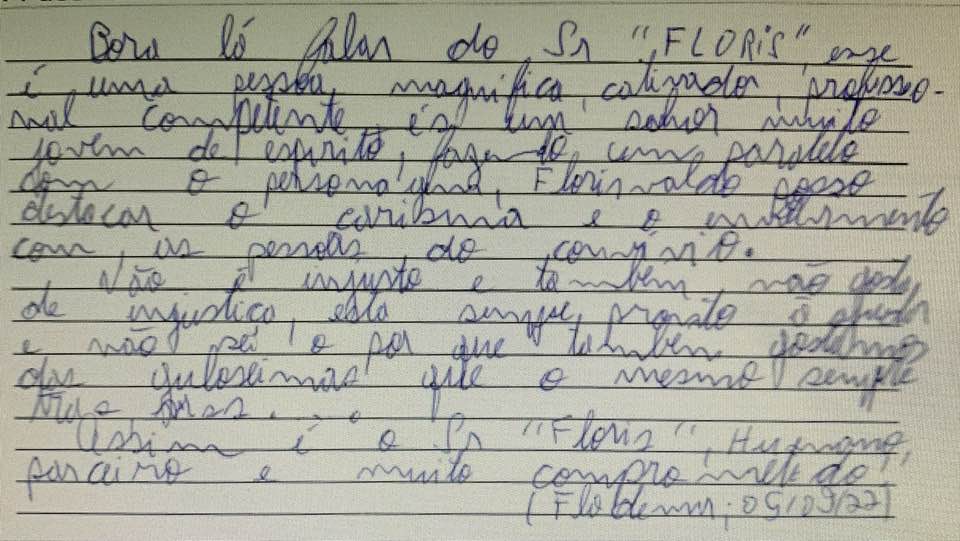 Bora ló falar do Sr "FLORIS", esse
é uma pessoa magnifica, cativador, professio-
nal competente, és um sohor muito
jovem de espirito, fazendo um paralelo
com o personagma, Florisvaldo posso
destacar o carisma e o
com, as pessoas do convívio.
Não é injusto e também, não gosta
de injustica, esta sempre, pronto a ajudar
e não sei o por que também gostamos
das guloseimas que o mesmo sempre
tras, kras. . . .
Assim é o Sr "Floris", Humano,
parceiro e muito comprometido
05/09/22)